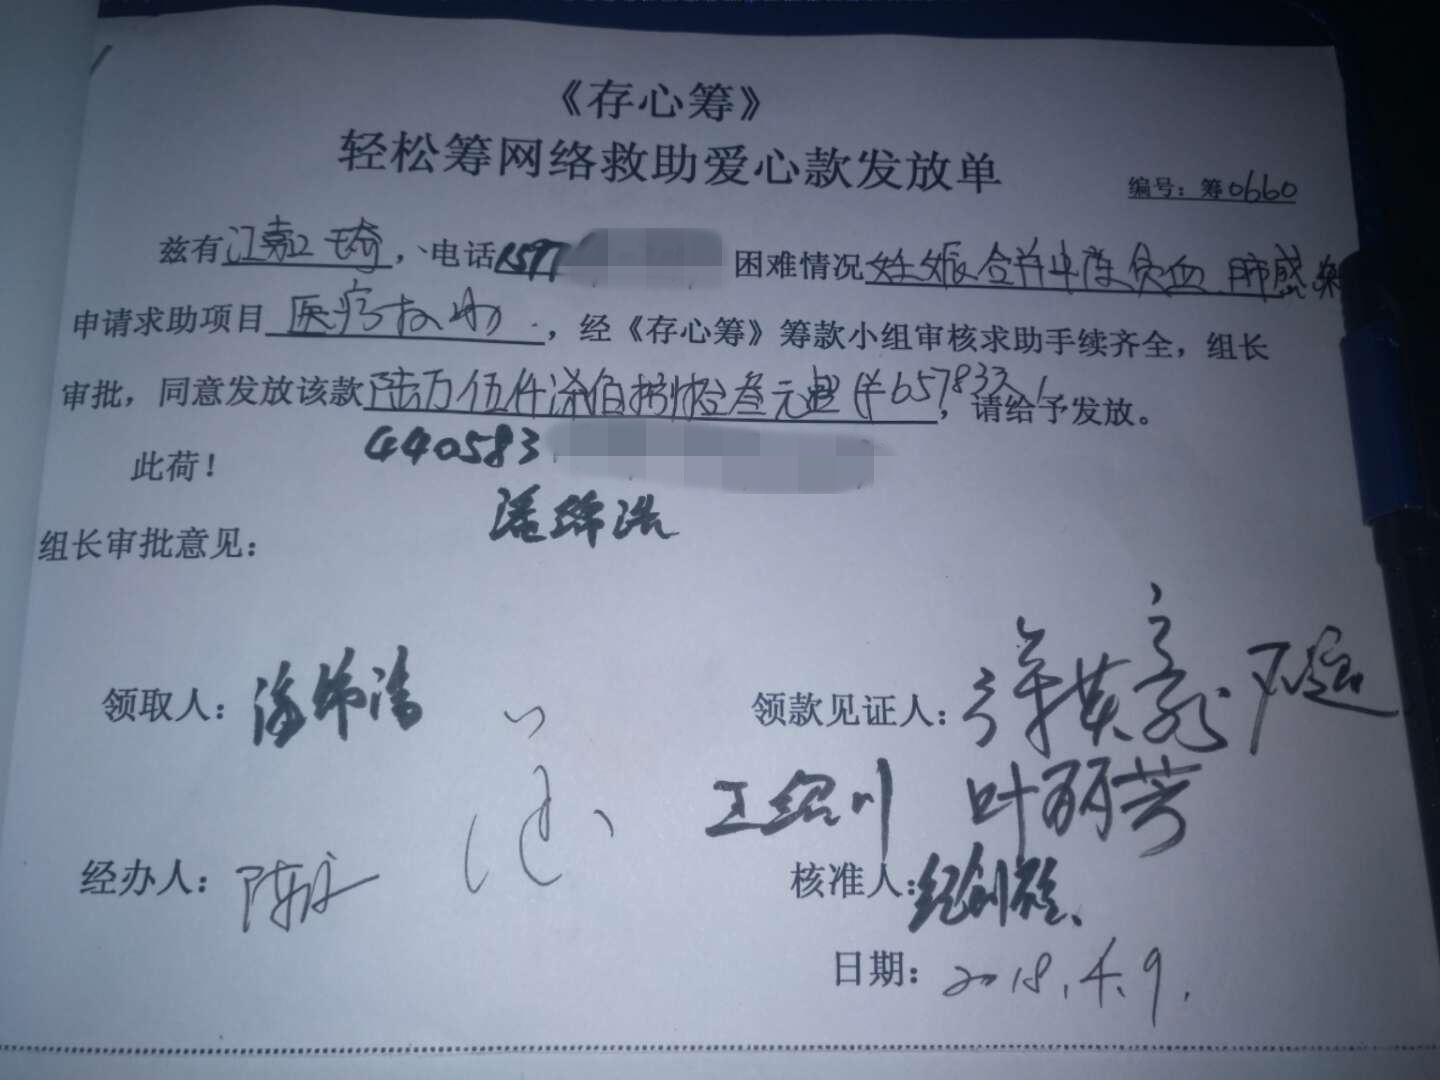 《存心筹》
轻松筹网络救助爱心款发放单
编号：筹0660
兹有江嘉琦，电话1597 困难情况妊娠合并中度贫血 肺感染
申请求助项目医疗救助，经《存心筹》筹款小组审核求助手续齐全，组长
审批，同意发放该款陆万伍仟柒佰捌拾叁元 ¥65783元，请给予发放。
此荷！ 440583
组长审批意见：
领取人： 领款见证人：
王绍川 叶丽芳
经办人： 核准人：
日期：2018.4.9.